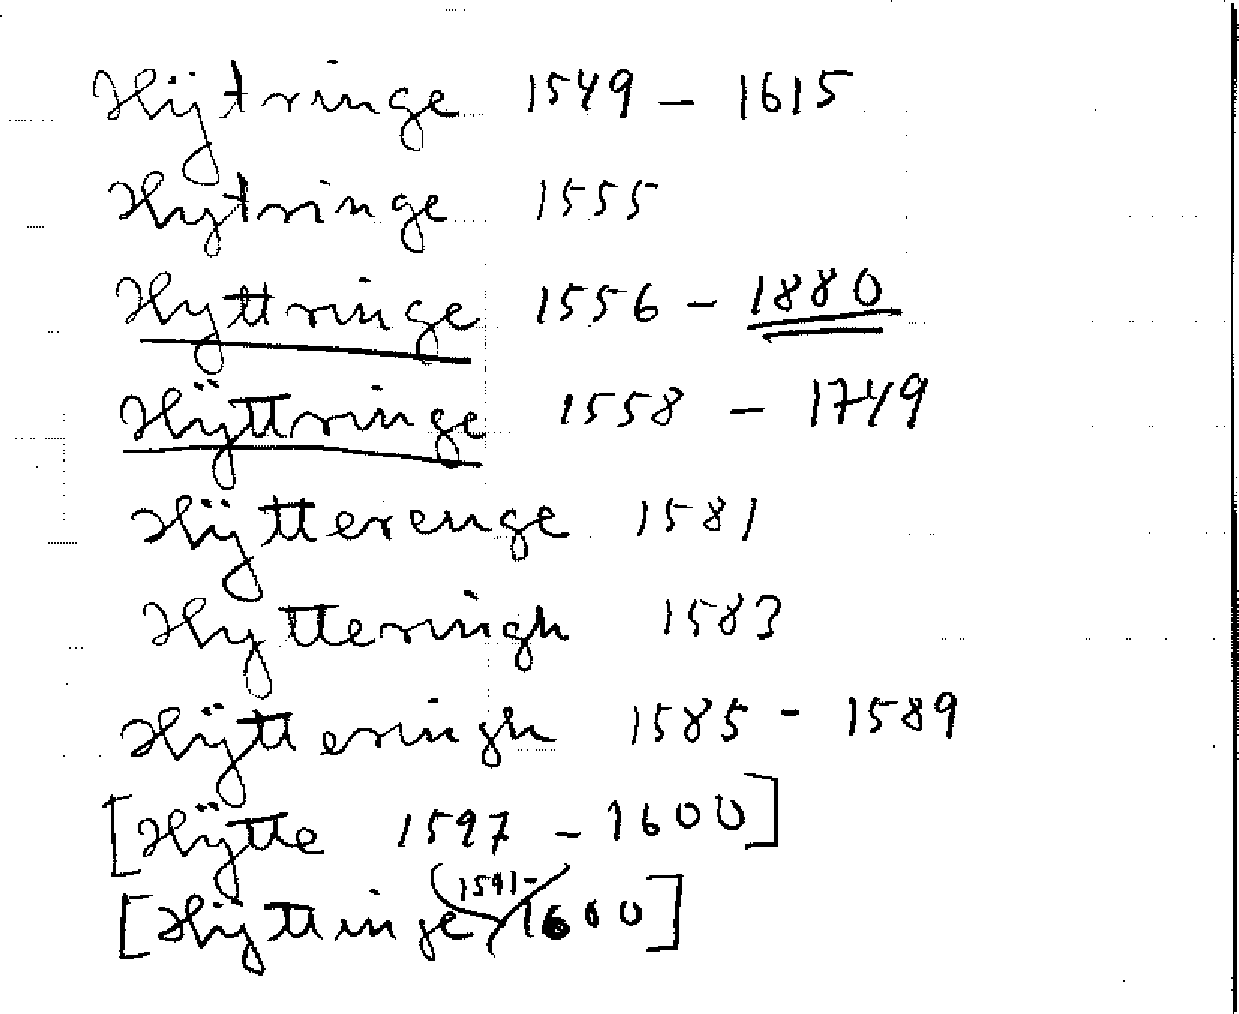 Hÿtringe 1549 - 1615
Hytringe 1555
Hyttringe 1556 - 1880
Hÿttringe 1558 - 1749
Hÿtterenge 1581
Hytteringh 1583
Hÿtteringh 1585 - 1589
[Hÿtte 1597 - 1600]
[Hÿttinge 1591- 1600]